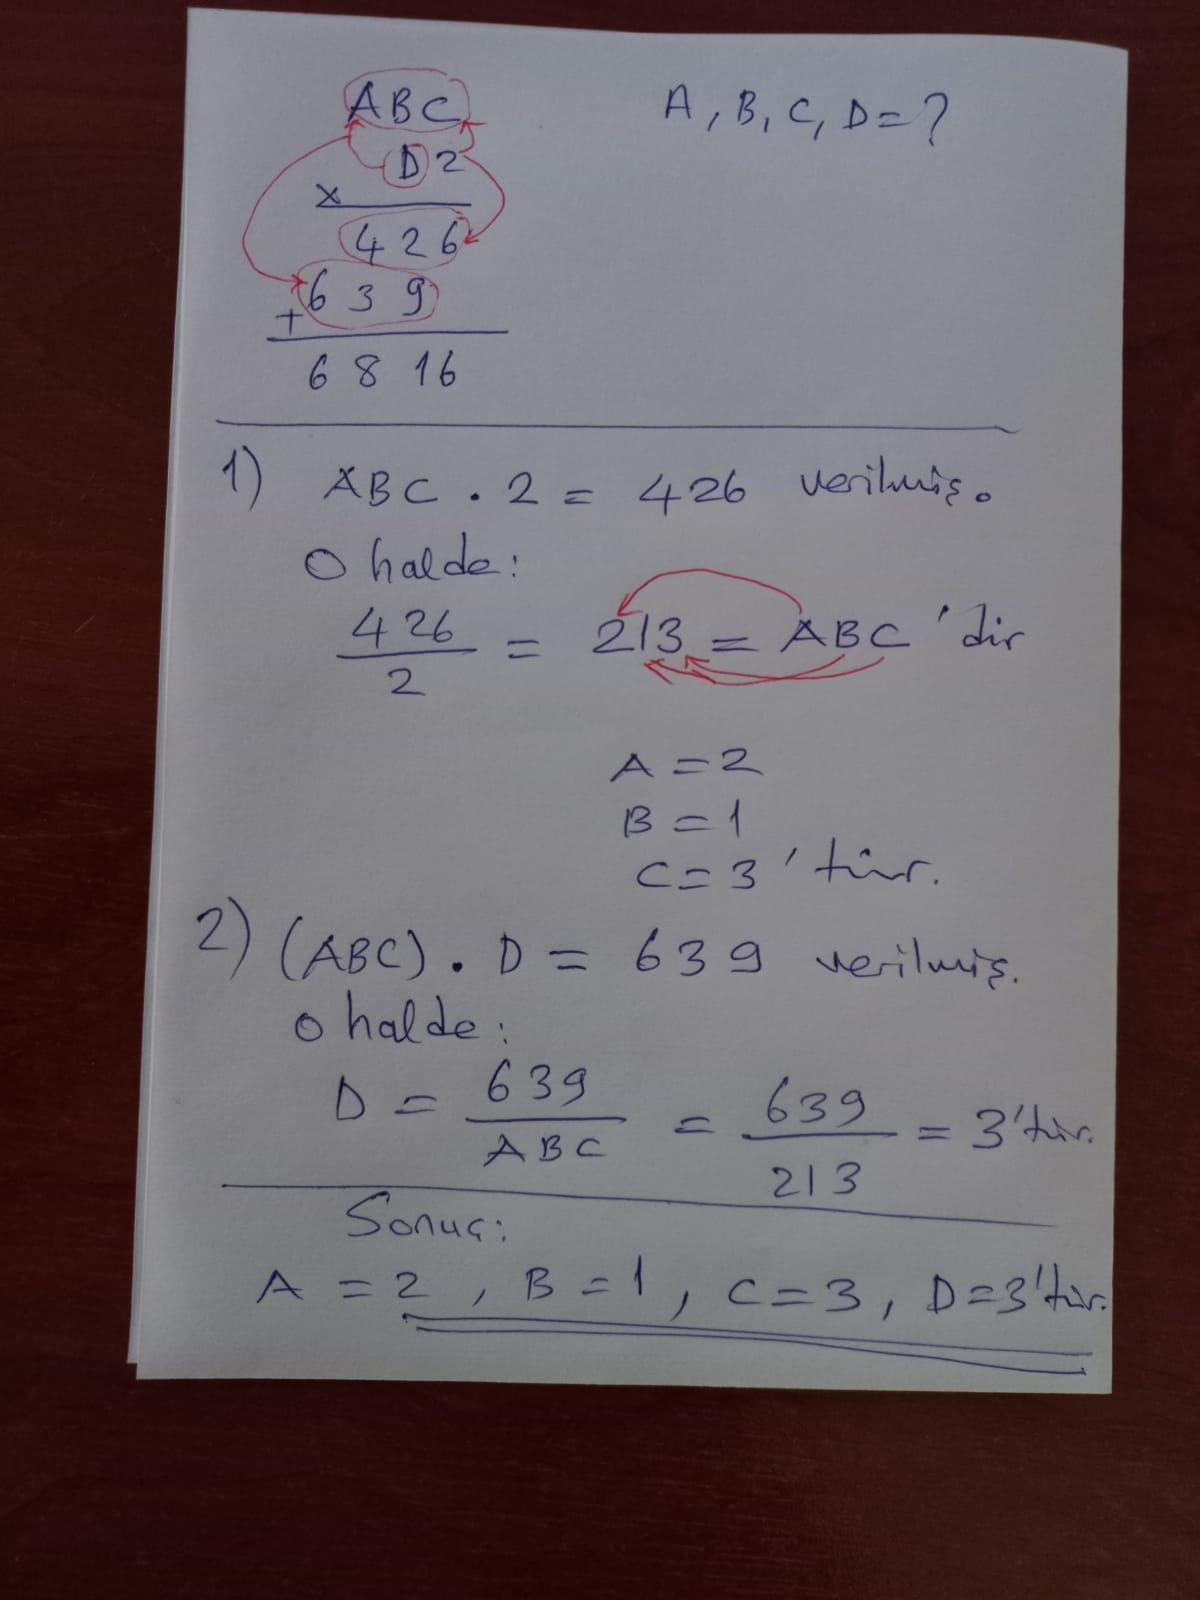 ABC
A, B, C, D = ?
D2
x
426
639
+
6816
1) ABC . 2 = 426 verilmiş.
O halde:
426
2
= 213 = ABC 'dir
A = 2
B = 1
C = 3 'tür.
2) (ABC) . D = 639 verilmiş.
O halde:
D = 639/ABC = 639/213 = 3'tür.
Sonuç:
A = 2, B = 1, C = 3, D = 3'tür.